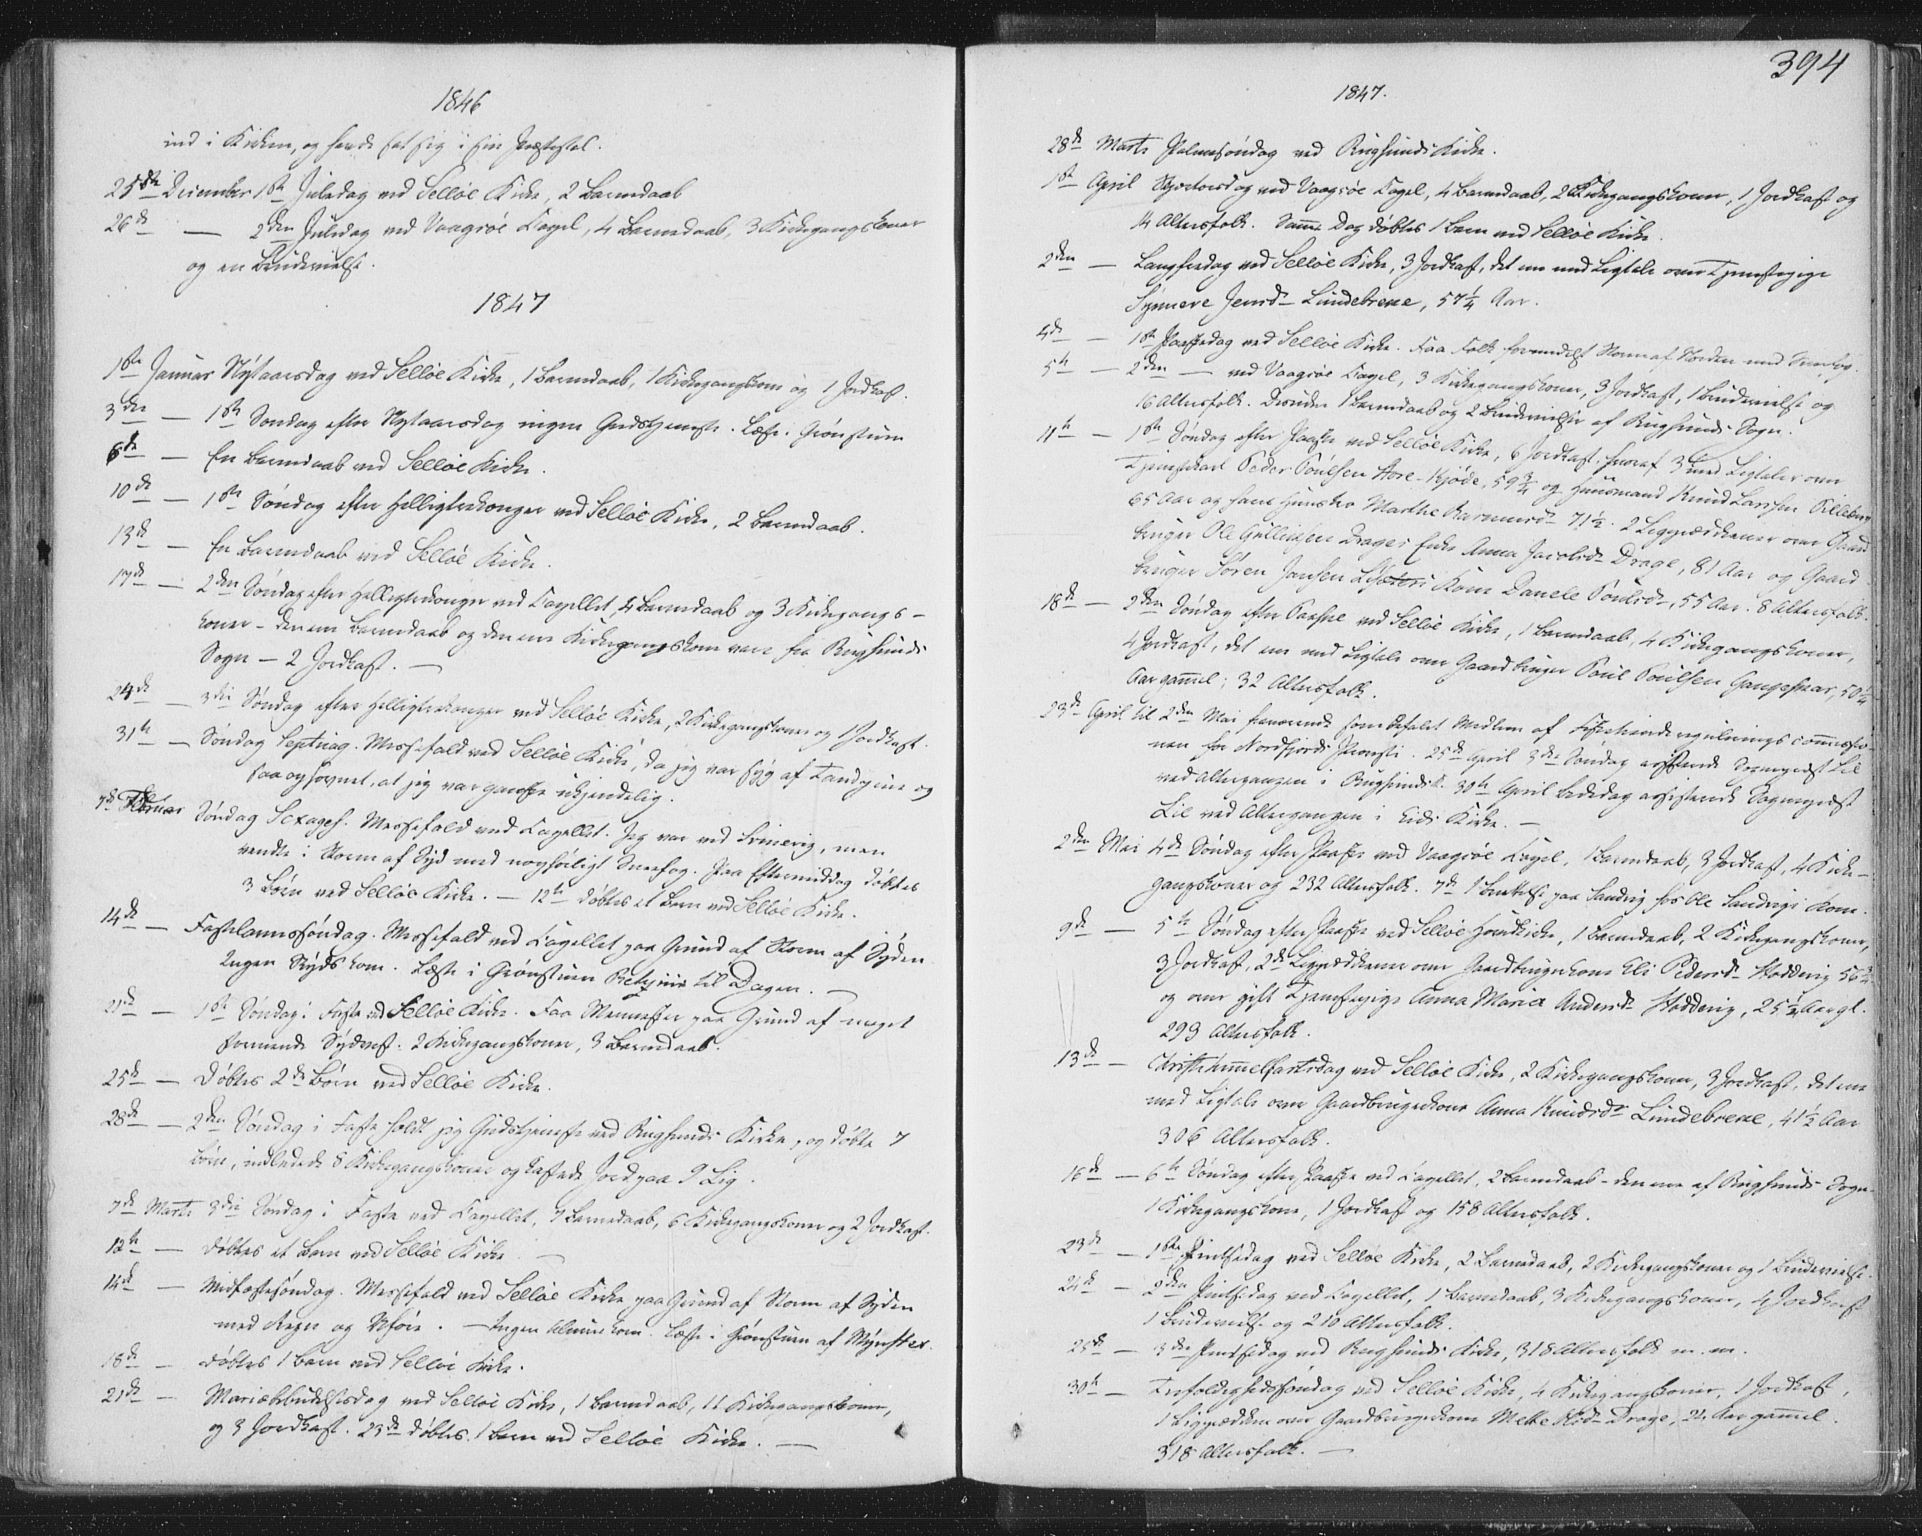 1846
ind i Kirken, og havde sat sig i sin Præstestol.
25de December 1ste Juledag ved Selløe Kirke, 2 Barnedaab
26de — 2den Juledag ved Vaagsöe Capel, 4 Barnedaab, 3 Kirkegangskoner
og en Brudevielse.
1847
1ste Januar Nytaarsdag ved Selløe Kirke, 1 Barnedaab, 1 Kirkegangskone og 1 Jordkast.
3die — 1ste Søndag efter Nytaarsdag ingen Gudstjeneste. Læste i Grønstuen
6te — En Barnedaab ved Selløe Kirke.
10de — 1ste Søndag efter Helligtrekonger ved Selløe Kirke, 2 Barnedaab.
13de — En Barnedaab ved Selløe Kirke.
17de — 2den Søndag efter Helligtrekonger ved Capellet, 4 Barnedaab og 3 Kirkegangs-
koner – den ene Barnedaab og den ene Kirkegangskone vare fra Rugsunds
Sogn — 2 Jordkast. —
24de — 3die Søndag efter Helligtrekonger ved Selløe Kirke, 2 Kirkegangskoner og 1 Jordkast.
31te — Søndag Septuag. Messefald ved Selløe Kirke, da jeg var syg af Tandpine og
saa ophovnet, at jeg var ganske ukjendelig.
7de Februar Søndag Sexages. Messefald ved Capellet. Jeg var ved, men
vendte i Storm af Syd med Sneefog. Paa Eftermiddag døbtes
3 Børn ved Selløe Kirke. — 12te døbtes et Barn ved Selløe Kirke.
14de — Fastelavnssøndag. Messefald ved Capellet paa Grund af Storm af Syden
Ingen Skydskom. Læste i Grønstuen til Dagen. —
21de — 1ste Søndag i Faste ved Selløe Kirke. Faa Mennesker paa Grund af meget
Sydvest. 2 Kirkegangskoner, 3 Barnedaab.
25de — Døbtes 2de Børn ved Selløe Kirke.
28de — 2den Søndag i Faste holdt jeg Gudstjeneste ved Rugsunds Kirke, og døbte 7
Børn, indledede 8 Kirkegangskoner og kastede Jord paa 9 Lig.
7de Marts 3die Søndag i Faste ved Capellet, 7 Barnedaab, 6 Kirkegangskoner og 2 Jordkast.
12te — døbtes et Barn ved Selløe Kirke —
14de — Midfastesøndag. Messefald ved Selløe Kirke paa Grund af Storm af Syden
med Regn og. — Ingen Almue kom. Læste i Grønstuen af Mynster.
18de — døbtes 1 Barn ved Selløe Kirke.
21de — Mariæbebudelsesdag ved Selløe Kirke, 1 Barnedaab, 11 Kirkegangskoner,
og 3 Jordkast. 23de døbtes 1 Barn ved Selløe Kirke. —
394
1847.
28de Marts Palmesøndag ved Rugsunds Kirke.
1ste April Skjærtorsdag ved Vaagsöe Capel, 4 Barnedaab, 2 Kirkegangskoner, 1 Jordkast og
14 Altersfolk. Samme Dag døbtes 1 Barn ved Selløe Kirke.
2den — Langfredag ved Selløe Kirke, 3 Jordkast, det ene med Ligtale over Tjenestepige
Synneve Jensd. Lundebrekke, 57¼ Aar.
4de — 1ste Paaskedag ved Selløe Kirke. Faa Folk formedelst Storm af Norden med Sneefog.
5te — 2den — ved Vaagsöe Capel, 3 Kirkegangskoner, 3 Jordkast, 1 Brudevielse og
16 Altersfolk. Desuden 1 Barnedaab og 2 Brudevielser af Rugsunds Sogn.
11te — 1ste Søndag efter Paaske ved Selløe Kirke, 6 Jordkast, hvoraf 3 med Ligtaler over
Tjenestekarl Peder Poulsen, 59¾ og Huusmand Knud Larsen
65 Aar og hans Huustro Marthe Rasmusd. 71½. 2 Ligprædikener over Gaard-
bruger Ole Gulleiksen Drages Enke Anna Jacobsd. Drage, 81 Aar og Gaard-
bruger Søren Jonsen Kone Danele Poulsd., 55 Aar. 8 Altersfolk.
18de — 2den Søndag efter Paaske ved Selløe Kirke, 1 Barnedaab, 4 Kirkegangskoner,
4 Jordkast, det ene med Ligtale over Gaardbruger Poul Poulsen, 50¼
Aar gammel; 32 Altersfolk.
23de April til 2den Mai fraværende som befalet Medlem af
for Nordfjords Provsti. 25de April 3die Søndag assisterede Sognepræst Lil
ved Altergangen i Rugsund. 30te April Bededag assisterede Sognepræst
Lil ved Altergangen i Eids Kirke. —
2den Mai 4de Søndag efter Paaske ved Vaagsöe Capel, 1 Barnedaab, 3 Jordkast, 4 Kirke-
gangskoner og 232 Altersfolk. 7de paa Sandvig hos Ole Sandvigs Kone.
9de — 5te Søndag efter Paaske ved Selløe Hovedkirke, 1 Barnedaab, 2 Kirkegangskoner,
3 Jordkast, 2de Ligprædikener over Gaardbrugerkone Eli Pedersd. Hoddevig 56
og over gift Tjenestepige Anna Maria Andersd. Hoddevig, 25½ Aar gl.
293 Altersfolk.
13de — Christi Himmelfartsdag ved Selløe Kirke, 2 Kirkegangskoner, 3 Jordkast, det ene
med Ligtale over Gaardbrugerkone Anna Knudsd. Lundebrekke, 41½ Aar
306 Altersfolk.
16de — 6te Søndag efter Paaske ved Capellet, 2 Barnedaab – den ene af Rugsunds Sogn –
1 Kirkegangskone, 1 Jordkast og 158 Altersfolk.
23de — 1ste Pintsedag ved Selløe Kirke, 2 Barnedaab, 2 Kirkegangskoner og 1 Brudevielse.
24de — 2den Pintsedag ved Capellet, 1 Barnedaab, 3 Kirkegangskoner, 4 Jordkast
1 Brudevielse og 210 Altersfolk.
25de — 3die Pintsedag ved Rugsunds Kirke, 318 Altersfolk m. m.
30te — Trefoldighedssøndag ved Selløe Kirke, 4 Kirkegangskoner, 1 Jordkast,
1 Ligprædiken over Gaardbrugerkone Mette Drage, Aar gammel.
318 Altersfolk. —